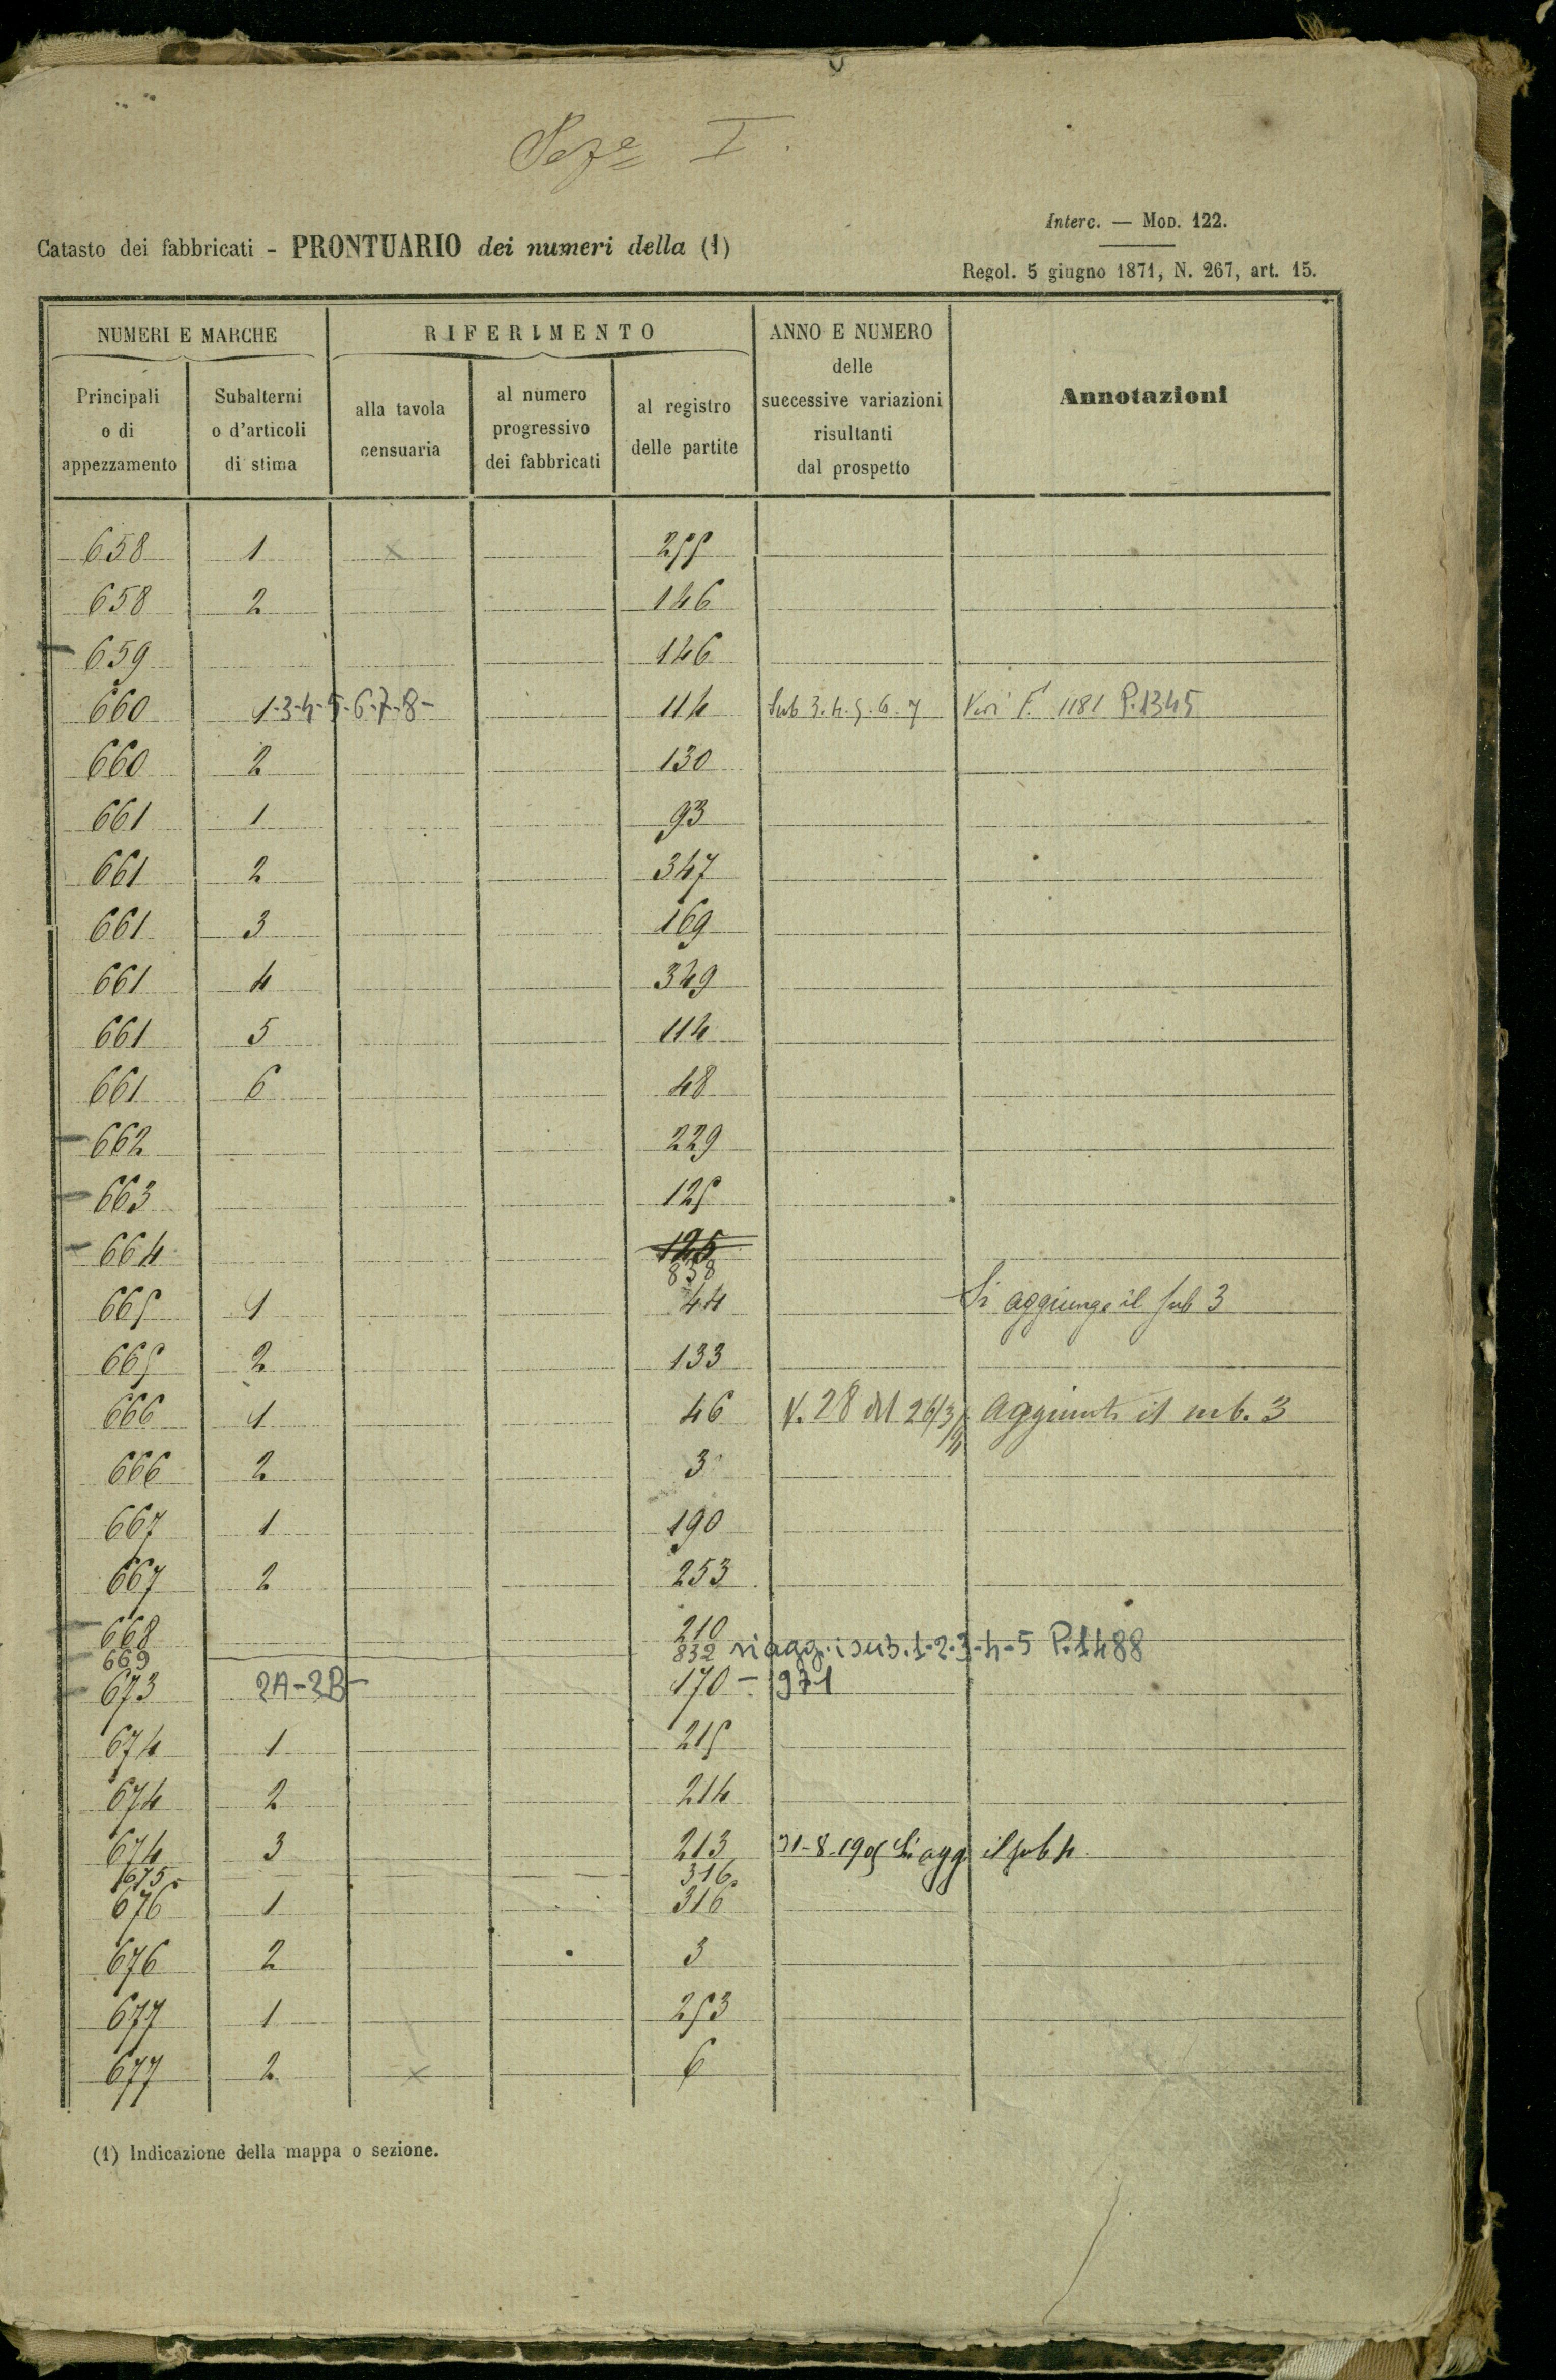 Seze I.
Interc. — Mod. 122.
Catasto dei fabbricati - PRONTUARIO dei numeri della (1)
Regol. 5 giugno 1871, N. 267, art. 15.
NUMERI E MARCHE
RIFERIMENTO
ANNO E NUMERO
delle
successive variazioni
risultanti
dal prospetto
Annotazioni
Principali
o di
appezzamento
Subalterni
o d'articoli
di stima
alla tavola
censuaria
al numero
progressivo
dei fabbricati
al registro
delle partite
658 1 x 255
658 2 146
659 146
660 1-3-4-5-6-7-8- 114 Sub 3.4.5.6.7 F. 1181 P.1345
660 2 130
661 1 93
661 2 347
661 3 169
661 4 349
661 5 114
661 6 48
662 229
663 125
664 125
838
665 1 44 Si aggiunge il sub 3
665 2 133
666 1 46 V. 28 del 26/3 aggiunto il sub. 3
666 2 3
667 1 190
667 2 253
668 210
669 832 si agg. i sub. 1-2-3-4-5 P.1488
673 2A-2B- 170 - 971
674 1 215
674 2 214
674 3 213 31-8-1905 Si agg il sub 4
675 316
676 1 316
676 2 3
677 1 253
677 2 x 6
(1) Indicazione della mappa o sezione.